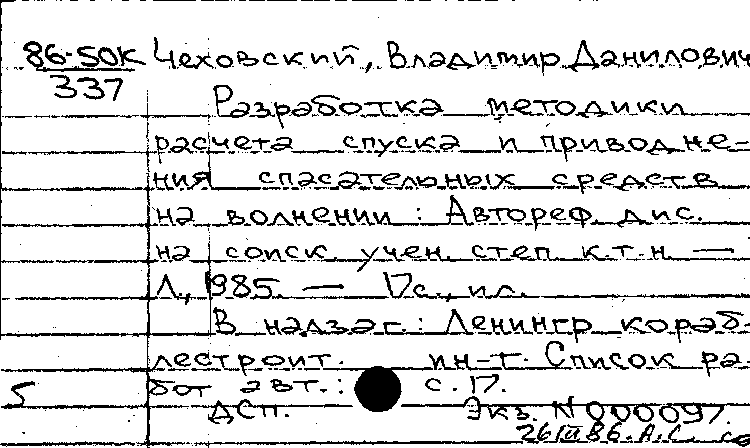 86-50К Чеховский, Владимир Данилович
337
Разработка методики
расчета спуска и приводне-
ния спасательных средств
на волнении : Автореф. дис.
на соиск. учен. степ. к.т.н. —
Л., 1985. — 17с., ил.
В надзаг.: Ленингр. кораб-
лестроит. ин-т. Список ра-
5 бот авт.: с. 17.
ДСП. Экз. N 000097.